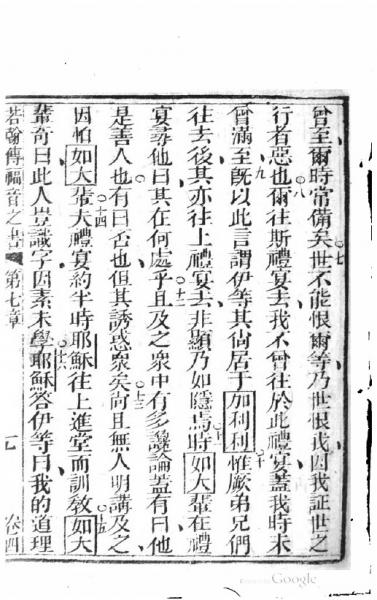 曾至爾時常備矣世不能恨爾等乃世恨我因我証世之
行者惡也爾往斯禮宴去我不曾往於此禮宴蓋我時未
曾滿至旣以此言謂伊等其尙居于加利利惟厥弟兄們
往去後其亦往上禮宴去非顯乃如隱焉時如大輩在禮
宴尋他曰其在何處乎且及之衆中有多議論蓋有曰他
是善人也有曰否也但其誘惑衆矣尙且無人明講及之
因怕如大輩夫禮宴約半時耶穌往上進堂而訓敎如大
輩奇曰此人豈識字因素未學耶穌答伊等曰我的道理
若翰傳福音之書 第七章 七 卷四
○七
○八
○九
○十
○十一
○十二
○十三
○十四
○十五
○十六
Google